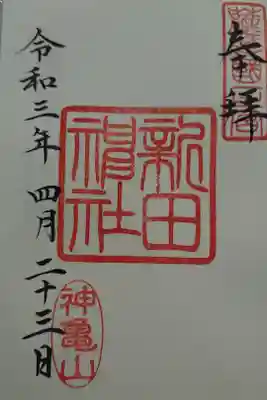 奉拝
新田
神社
令和三年 四月 二十三日
神亀山